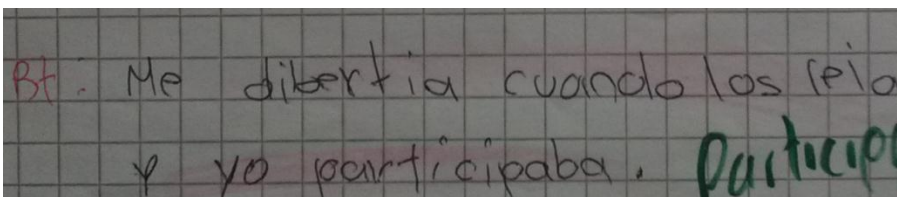 Bt: Me dibertia cuando los leia
y yo participaba. Particip